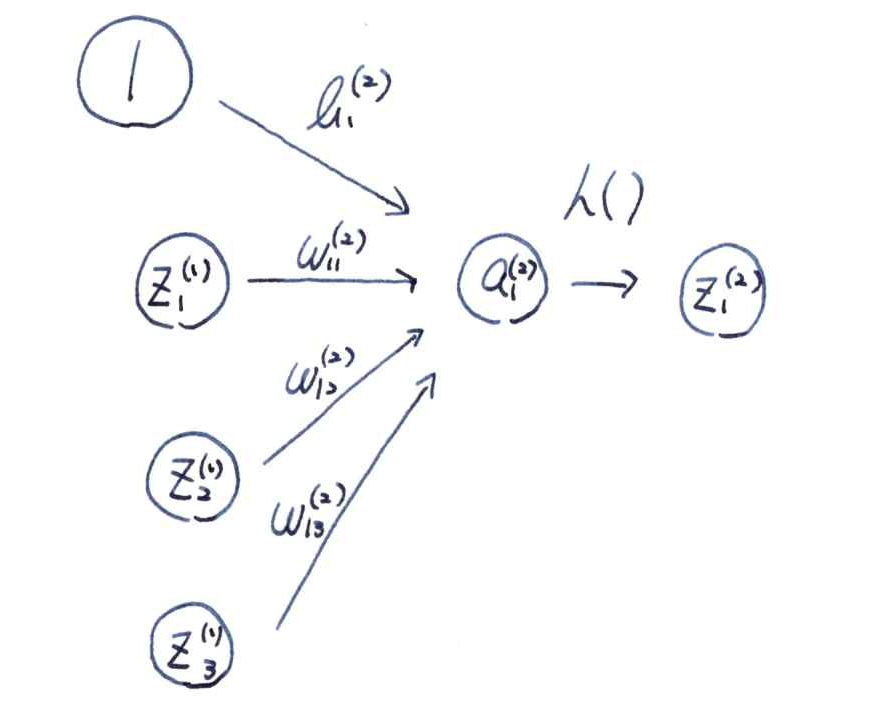 1
b₁⁽²⁾
h()
w₁₁⁽²⁾
z₁⁽¹⁾
a₁⁽²⁾
z₁⁽²⁾
w₁₂⁽²⁾
z₂⁽¹⁾
w₁₃⁽²⁾
z₃⁽¹⁾